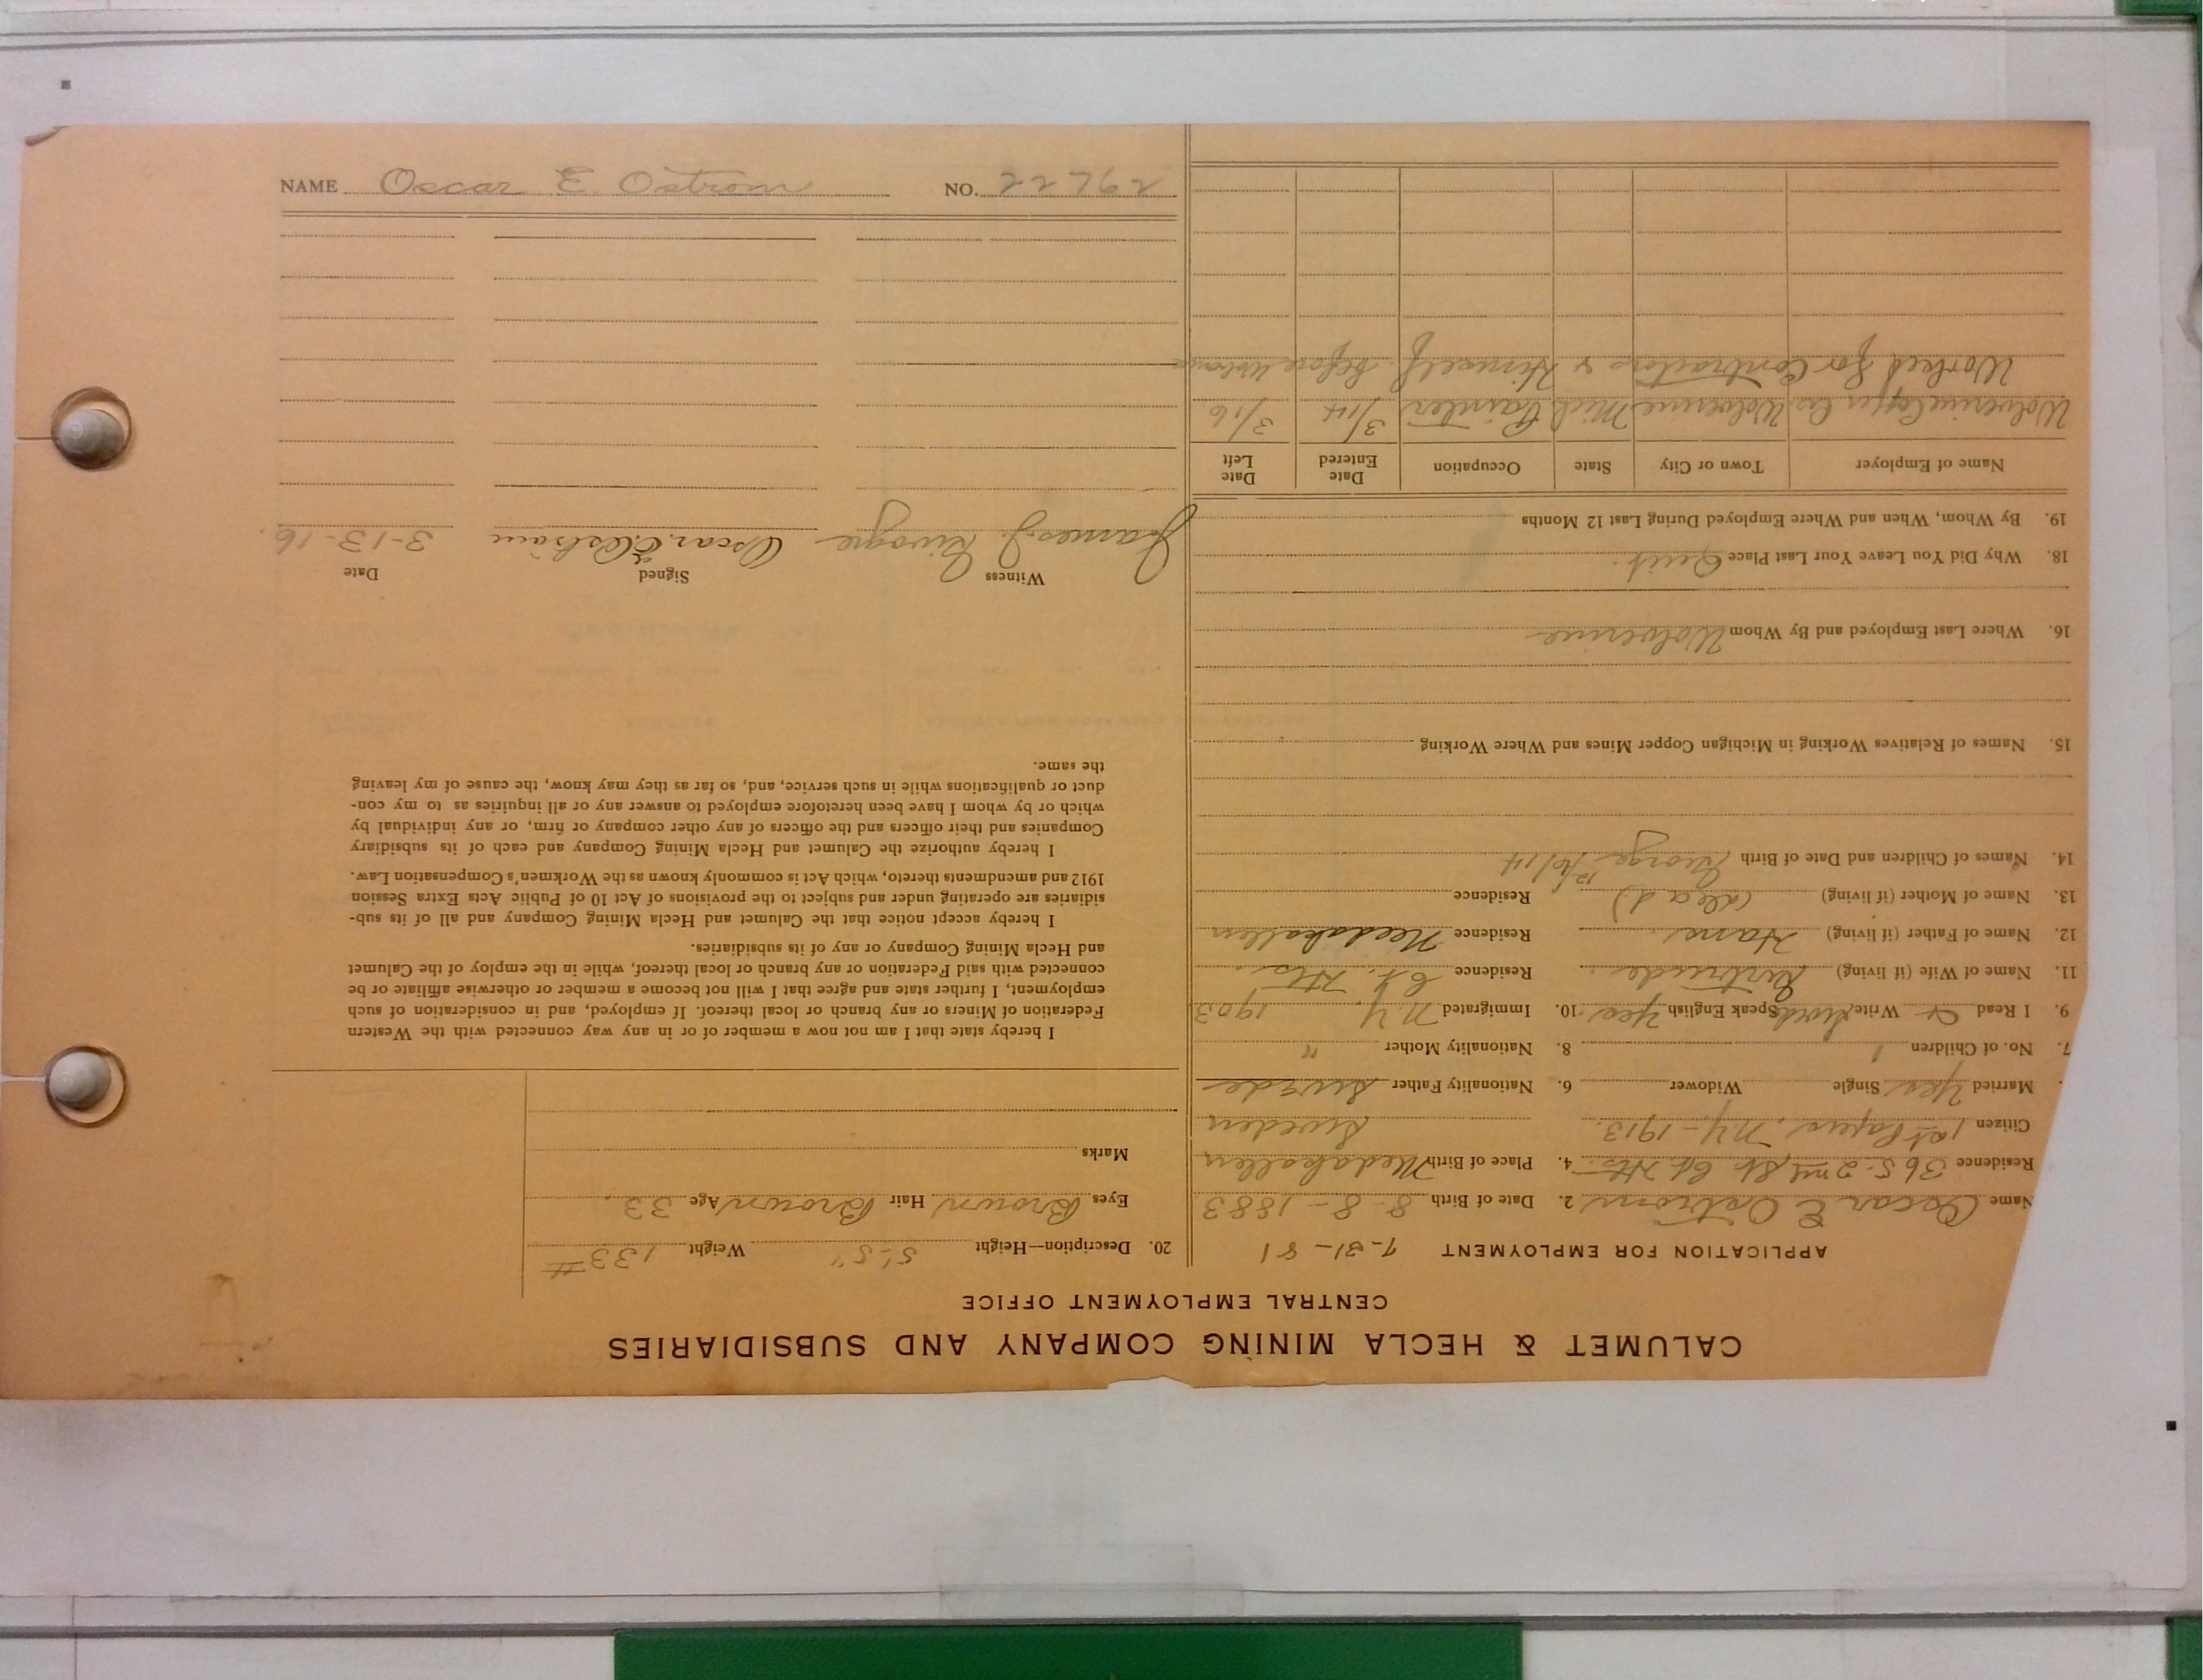 CALUMET & HECLA MINING COMPANY AND SUBSIDIARIES
CENTRAL EMPLOYMENT OFFICE
APPLICATION FOR EMPLOYMENT 7-31-81
Name Oscar E Ostrom 2. Date of Birth 8-8-1883
Residence 365-2nd St. Cy. Hts. 4. Place of Birth
Citizen 1st Papers. N.Y.-1913. Sweden
Married Yes Single Widower 6. Nationality Father Swede
7. No. of Children 1 8. Nationality Mother "
9. I Read & Write Swed Speak English Yes 10. Immigrated N.Y. 1903
11. Name of Wife (if living) Residence Cy. Hts.
12. Name of Father (if living) Hans. Residence
13. Name of Mother (if living) (dead) Residence
14. Names of Children and Date of Birth George
15. Names of Relatives Working in Michigan Copper Mines and Where Working
16. Where Last Employed and By Whom Wolverine
18. Why Did You Leave Your Last Place Quit.
19. By Whom, When and Where Employed During Last 12 Months
Name of Employer Town or City State Occupation Date Entered Date Left
Wolverine Copper Co Wolverine Mich Painter 3/14 3/16
Worked for Contractors & Himself before Wolverine
20. Description—Height 5'-5" Weight 133#
Eyes Brown Hair Brown Age 33.
Marks
I hereby state that I am not now a member of or in any way connected with the Western
Federation of Miners or any branch or local thereof. If employed, and in consideration of such
employment, I further state and agree that I will not become a member or otherwise affiliate or be
connected with said Federation or any branch or local thereof, while in the employ of the Calumet
and Hecla Mining Company or any of its subsidiaries.
I hereby accept notice that the Calumet and Hecla Mining Company and all of its sub-
sidiaries are operating under and subject to the provisions of Act 10 of Public Acts Extra Session
1912 and amendments thereto, which Act is commonly known as the Workmen's Compensation Law.
I hereby authorize the Calumet and Hecla Mining Company and each of its subsidiary
Companies and their officers and the officers of any other company or firm, or any individual by
which or by whom I have been heretofore employed to answer any or all inquiries as to my con-
duct or qualifications while in such service, and, so far as they may know, the cause of my leaving
the same.
Witness Signed Date
James J. Oscar E. Ostrom 3-13-16.
NAME Oscar E. Ostrom NO. 22762